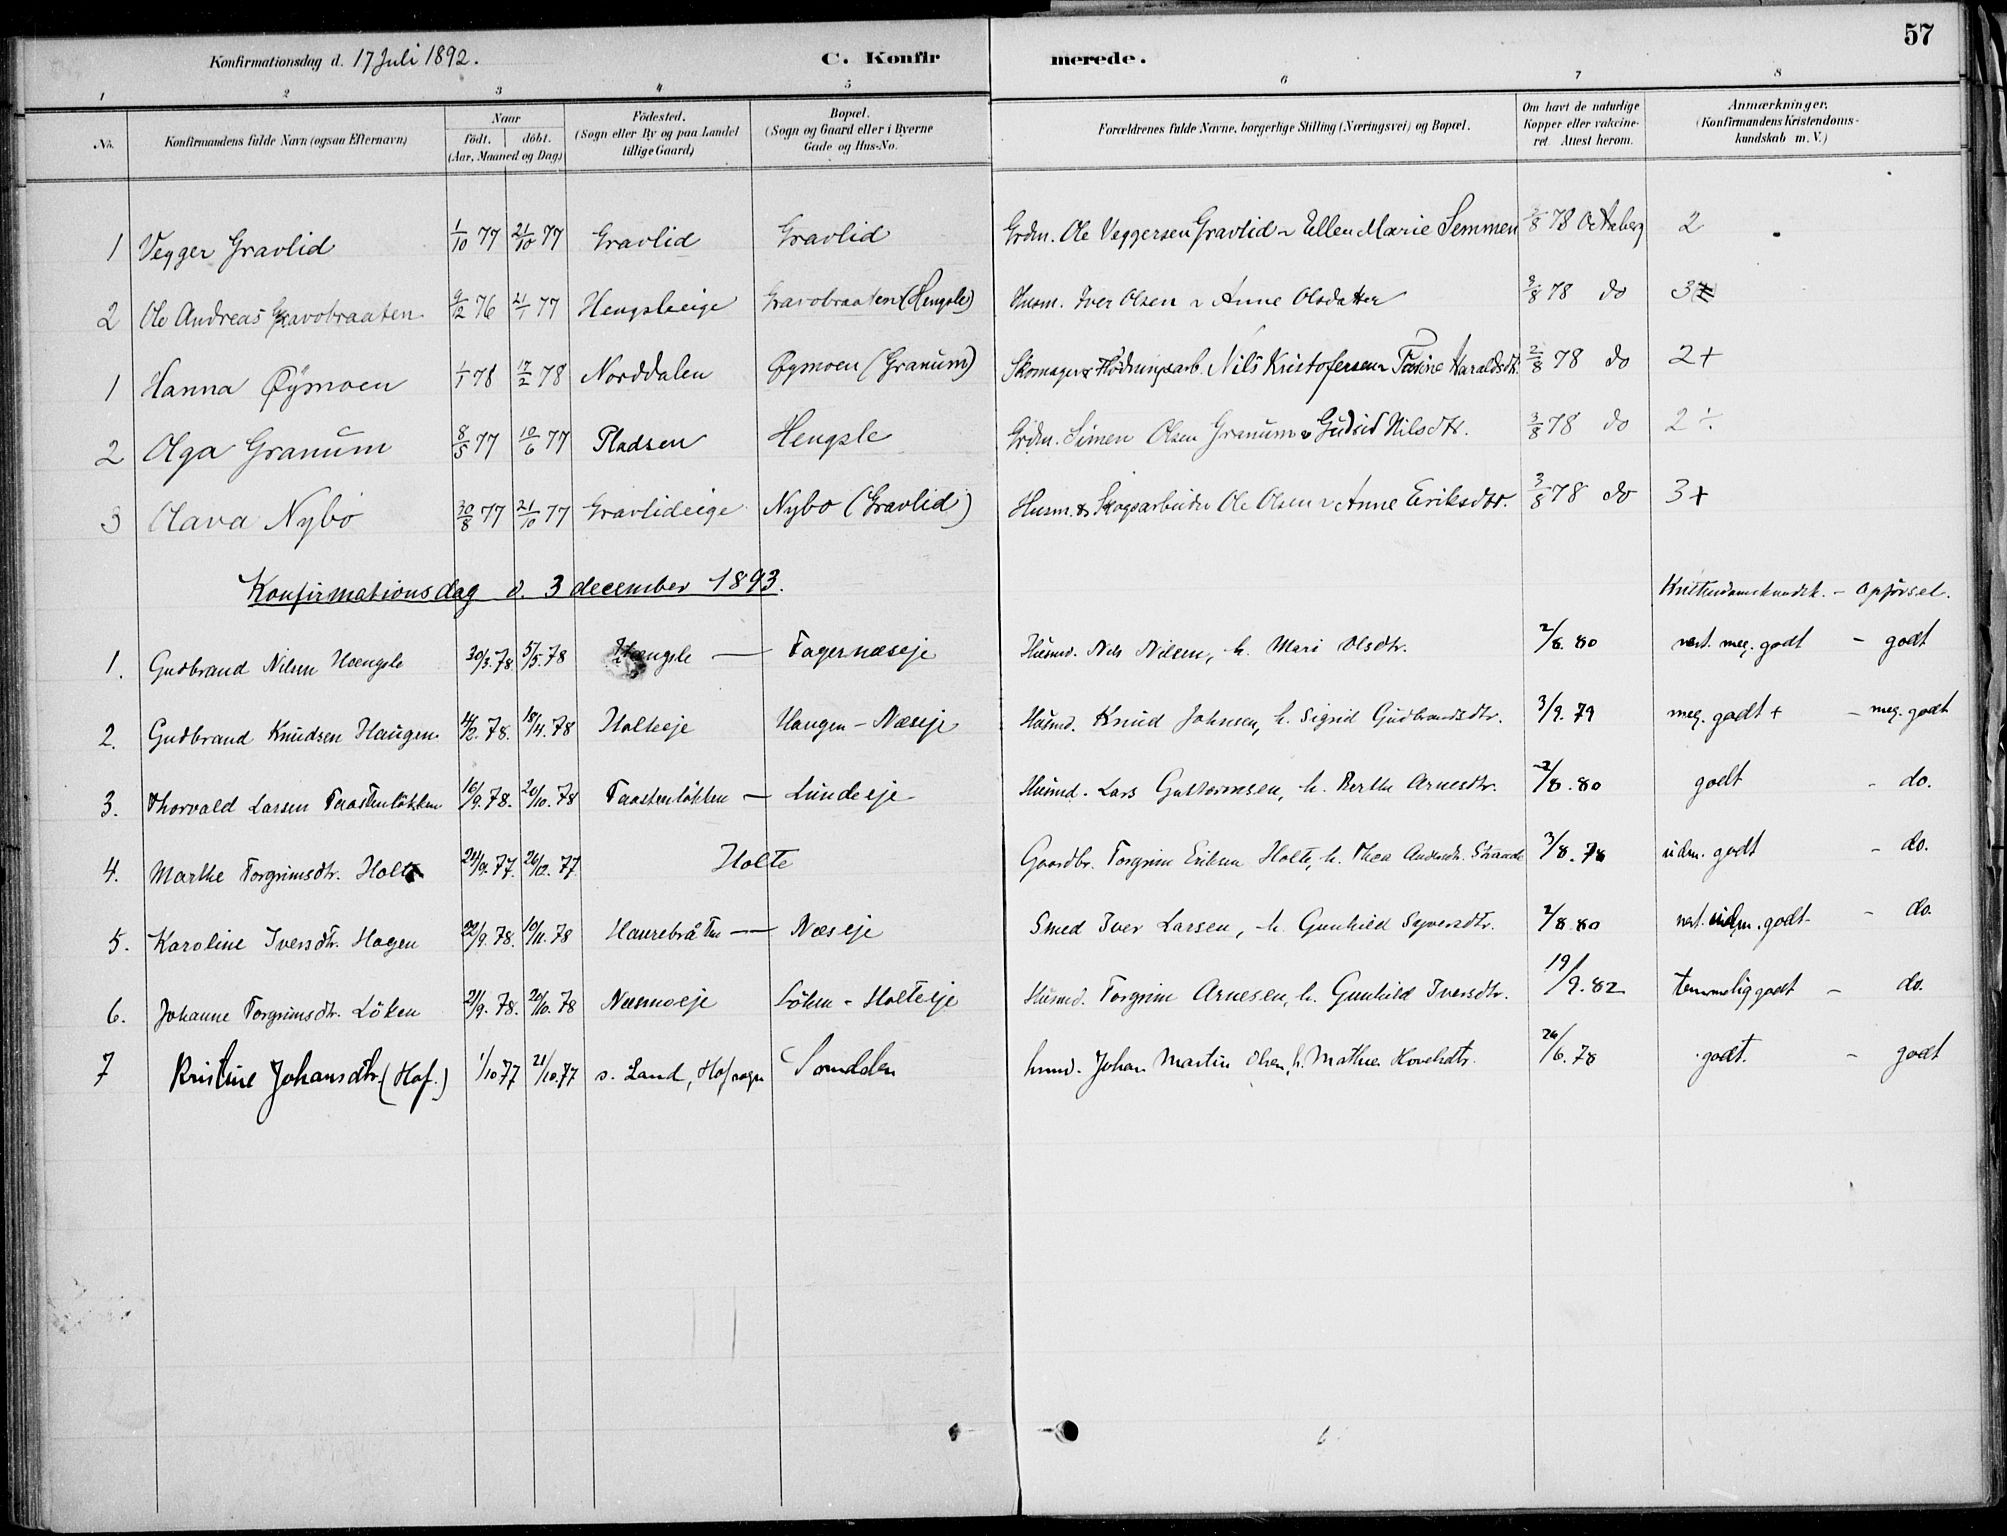 57
Konfirmationsdag d. 17 Juli 1892. C. Konfir merede.
1 2 3 4 5 6 7 8
No. Konfirmandens fulde Navn (ogsaa Efternavn) Naar födt. döbt. (Aar, Maaned og Dag) Födested. (Sogn eller By og paa Landet tillige Gaard) Bopæl. (Sogn og Gaard eller i Byerne Gade og Hus-No. Forældrenes fulde Navne, borgerlige Stilling (Næringsvei) og Bopæl. Om havt de naturlige Kopper eller vakcineret. Attest herom. Anmærkninger. (Konfirmandens Kristendomskundskab m. V.)
1 Vegger Gravlid 1/10 77 21/10 77 Gravlid Gravlid Grdm. Ole Veggersen Gravlid & Ellen Marie Semmen 3/8 78 2
2 Ole Andreas Gravobraaten 9/12 76 21/1 77 Hengsleeige Gravobraaten (Hengsle) Husm. Iver Olsen & Anne Olsdatter 3/8 78 do 3
1 Hanna Öymoen 1/1 78 17/2 78 Norddalen Øymoen (Granum) Skomager & Flødningsarb. Nils Kristofersen & Haraldsdt. 2/8 78 do 2+
2 Olga Granum 8/5 77 10/6 77 Pladsen Hengsle Grdm. Simen Olsen Granum & Gudrid Nilsdtr. 3/8 78 do 2÷
3 Olava Nybö 30/8 77 21/10 77 Gravlideige Nybo (Gravlid) Husm. & Skogsarbeider Ole Olsen & Anne Eriksdtr. 3/8 78 do 3+
Konfirmationsdag d. 3 december 1893. Kristendomskundsk. - opförsel.
1. Gudbrand Nilsen Hængsle 30/3. 78. 5/5. 78 Hængsle — Fagernæseje Husmd. Nils Nilsen, h. Mari Olsdtr. 2/8. 80 næst. meg. godt - godt
2. Gudbrand Knudsen Haugen. 14/2. 78. 18/4. 78 Holteeje Haugen - Næseje Husmd. Knud Johnsen, h. Sigrid Gudbrandsdtr. 3/9. 79 meg. godt + - meg. godt
3. Thorvald Larsen Taastenlökken 16/9. 78. 20/10. 78 Taastenlökken — Lundeeje Husmd. Lars Guttormsen, h. Berthe Arnesdtr. 2/8. 80 godt - do.
4. Marthe Torgrimsdtr. Holte 24/9. 77. 26/12. 77 Holte Gaardbr. Torgrim Eriksen Holte, h. Thea Andersdtr. Strande 3/8. 78 udm. godt - do.
5. Karoline Iversdtr. Hagen 22/9. 78. 10/11. 78 Haurebråten — Næseje Smed Iver Larsen, h. Gunhild Syversdtr. 2/8 80 næst. udm. godt - do.
6. Johanne Torgrimsdtr. Löken 21/9. 78. 20/10. 78 Næsmoeje Löken - Holteeje Husmd. Torgrim Arnesen, h. Gunhild Iversdtr. 19/9. 82 temmelig godt - do.
7 Kristine Johansdtr. (Hof.) 1/10 77 21/10. 77 s. Land, Hof sogn Sørumdalen husmd. Johan Martin Olsen, h. Mathea Hovelsdtr. 26/6. 78 godt. - godt